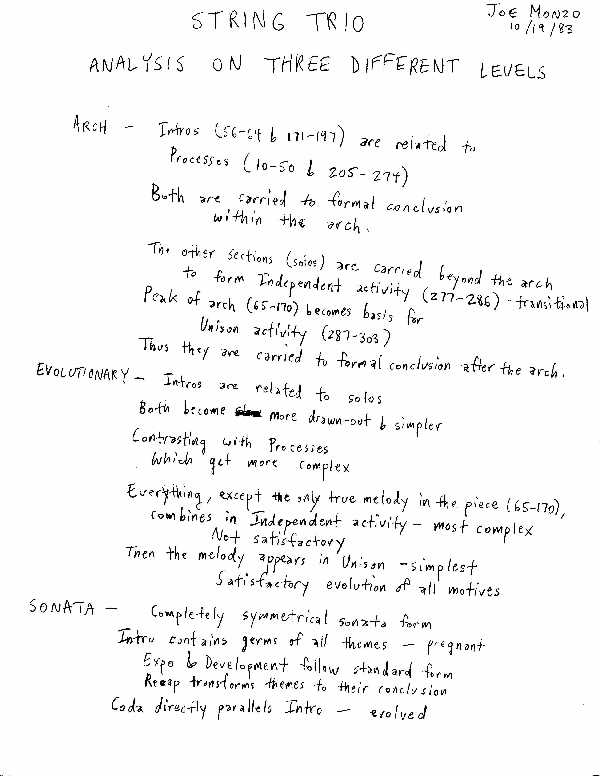 STRING TRIO
JOE MONZO
10/19/83
ANALYSIS ON THREE DIFFERENT LEVELS
ARCH - Intros (56-64 & 171-197) are related to
Processes (10-50 & 205-274)
Both are carried to formal conclusion
within the arch.
The other sections (solos) are carried beyond the arch
to form Independent activity (277-286) - transitional
Peak of arch (65-170) becomes basis for
Unison activity (287-303)
Thus they are carried to formal conclusion after the arch.
EVOLUTIONARY - Intros are related to solos
Both become more drawn-out & simpler
Contrasting with Processes
which get more complex
Everything, except the only true melody in the piece (65-170),
combines in Independent activity - most complex
Not satisfactory
Then the melody appears in Unison - simplest
Satisfactory evolution of all motives
SONATA - Completely symmetrical sonata form
Intro contains germs of all themes - pregnant
Expo & Development follow standard form
Recap transforms themes to their conclusion
Coda directly parallels Intro - evolved